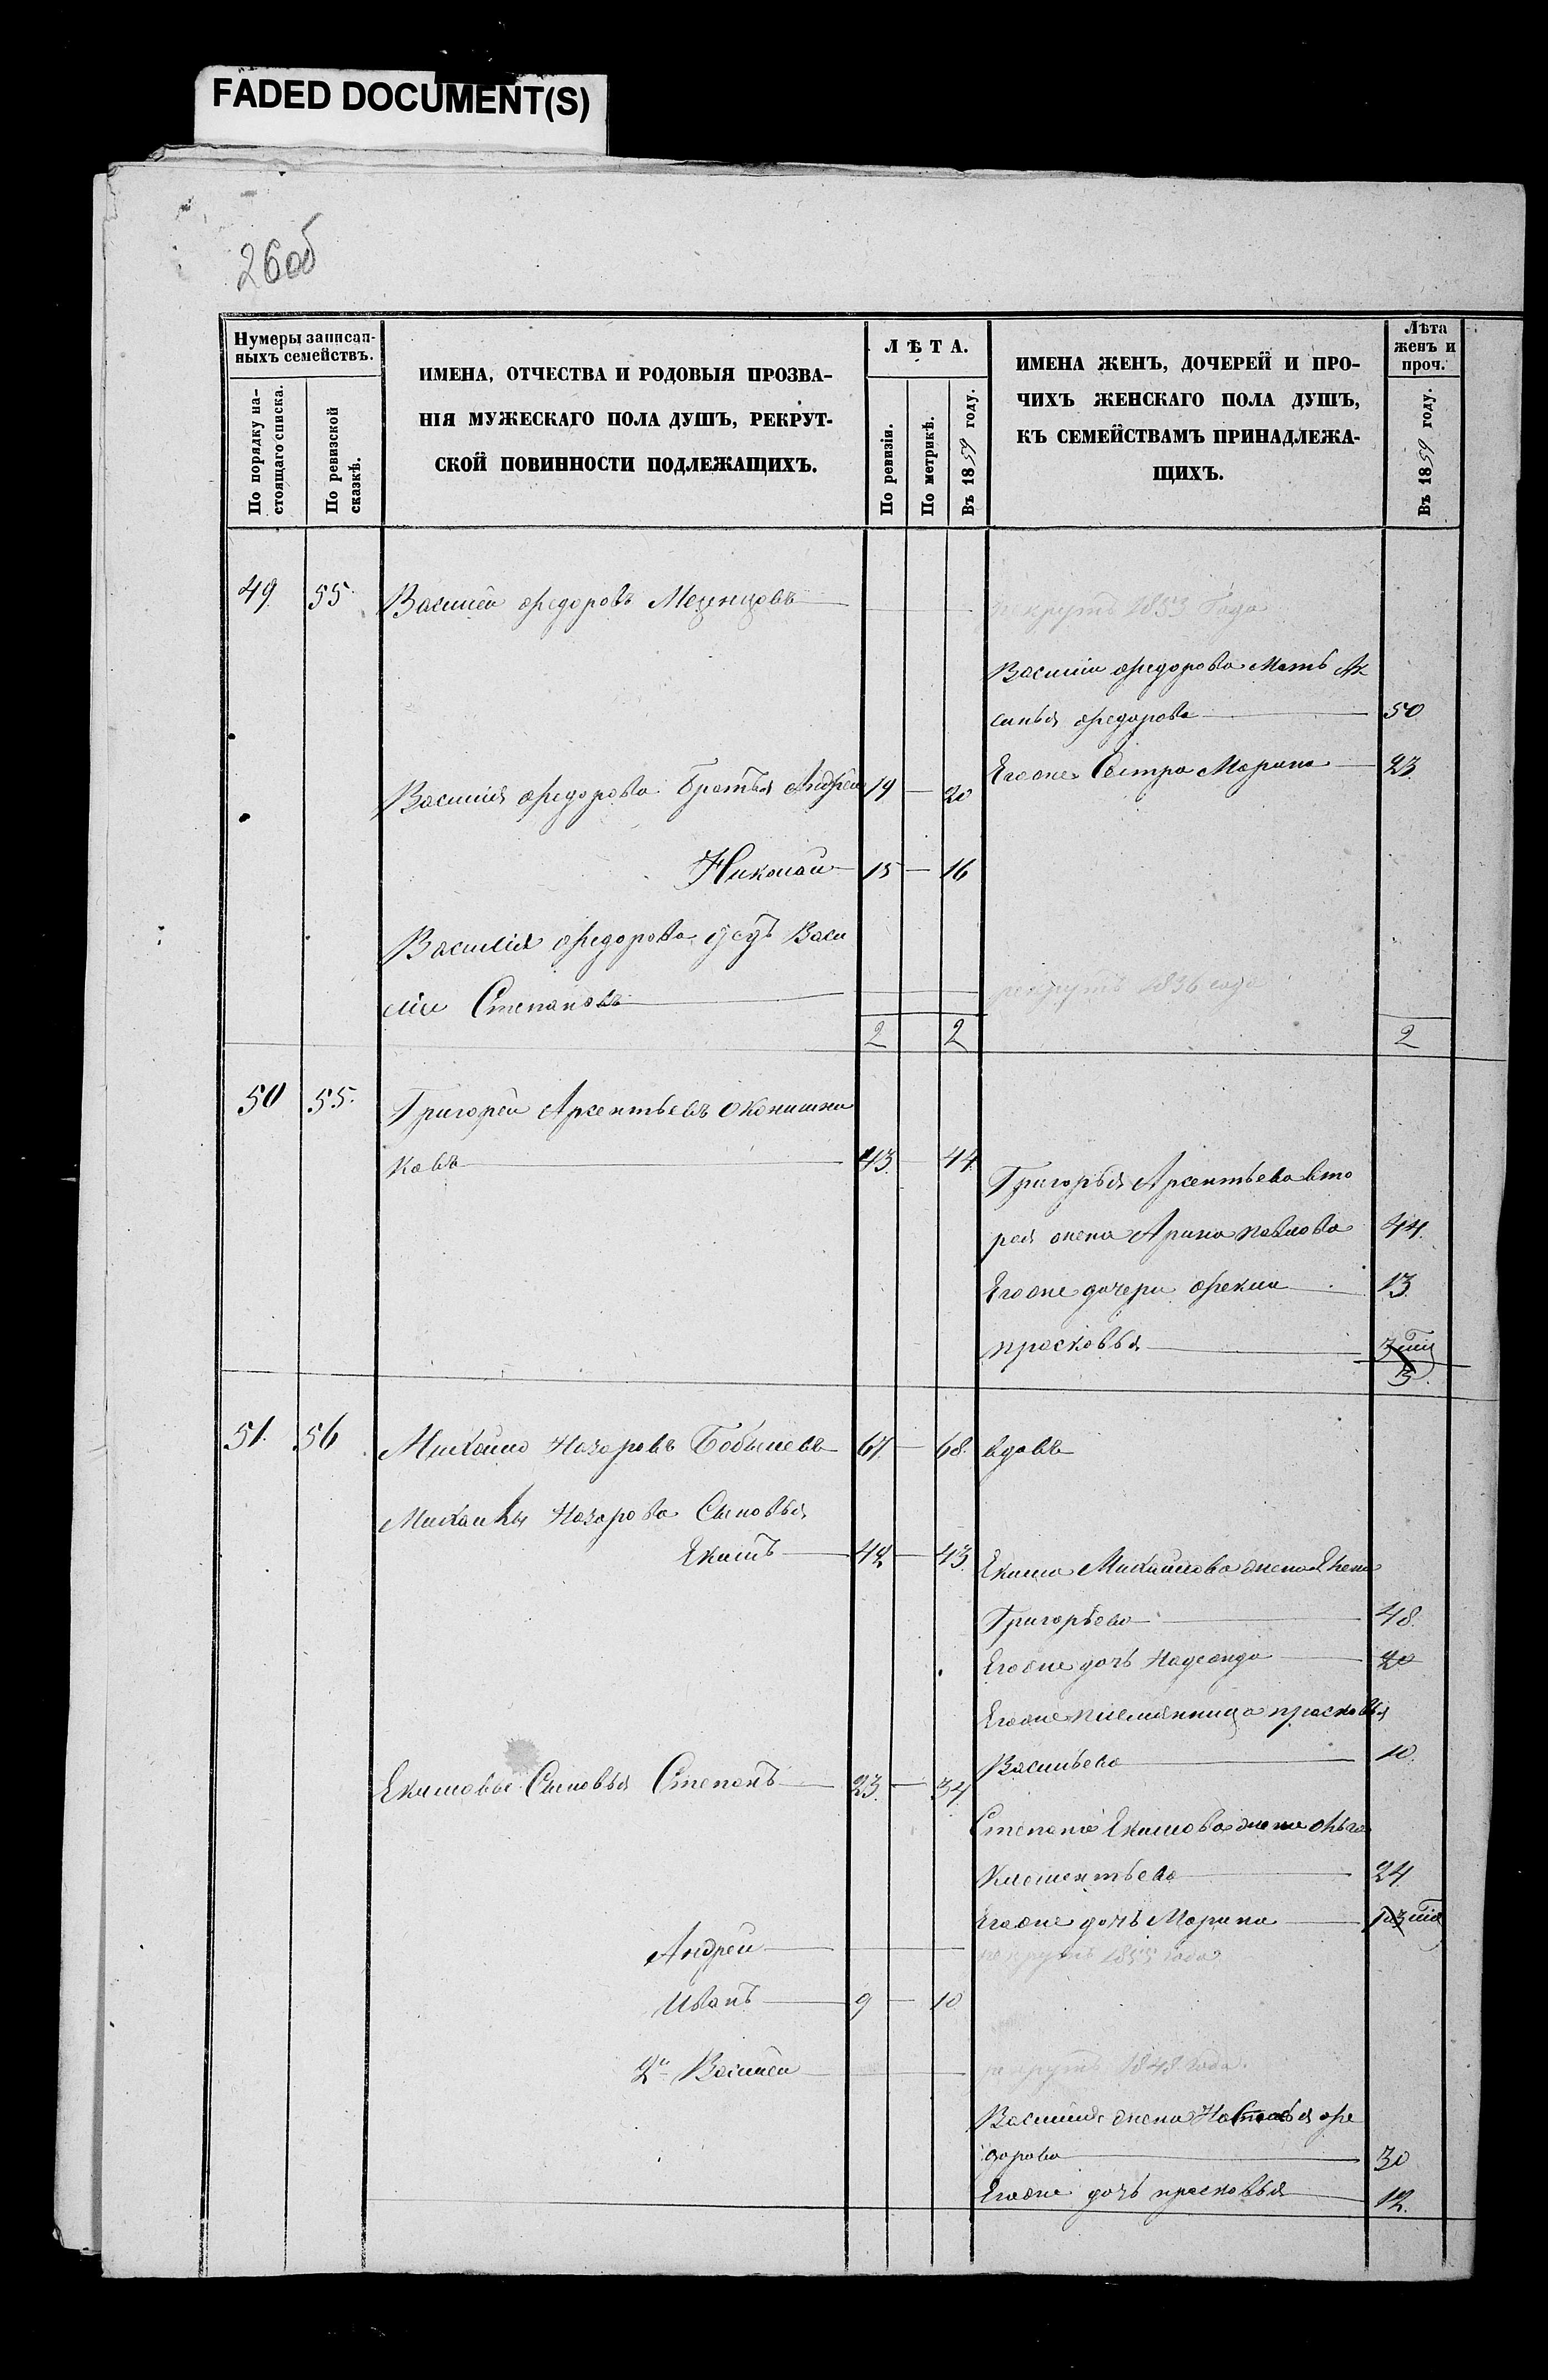 FADED DOCUMENT(S)
26об
Нумеры записан-
ныхъ семействъ.
По порядку на-
стоящаго списка.
По ревизской
сказкѣ.
ИМЕНА, ОТЧЕСТВА И РОДОВЫЯ ПРОЗВА-
НІЯ МУЖЕСКАГО ПОЛА ДУШЪ, РЕКРУТ-
СКОЙ ПОВИННОСТИ ПОДЛЕЖАЩИХЪ.
ЛѢТА.
По ревизіи.
По метрикѣ.
Въ 1859 году.
ИМЕНА ЖЕНЪ, ДОЧЕРЕЙ И ПРО-
ЧИХЪ ЖЕНСКАГО ПОЛА ДУШЪ,
КЪ СЕМЕЙСТВАМЪ ПРИНАДЛЕЖА-
ЩИХЪ.
Лѣта
женъ и
проч.
Въ 1859 году.
49 55 Василей Федоровъ Мезенцовъ — рекрутъ 1853 года
Василія Федорова Мать Ак
синья Федорова 50
Егоже Сестра Марина 23
Василія Федорова Братья Андрей 19 — 20
Николай 15 — 16
Василія Федорова дедъ Васи
лій Степановъ — рекрутъ 1836 года
2 2 2
50 55. Григорей Арсентьевъ Оконишни
ковъ 43 — 44
Григорья Арсентьева вто
рая жена Арина Павлова 44
Егоже дочери Фекла 13
Прасковья
3
51. 56 Михайло Назаровъ Бобылевъ 67 — 68 вдовъ
Михайлы Назарова Сыновья
Екимъ 42 — 43
Екима Михайлова жена Елена
Григорьева 48
Егоже дочь Надежда 20
Егоже племянница Прасковья
Васильева 10
Екимовы Сыновья Степанъ 23 — 34
Степана Екимова жена Ольга
Клементьева 24
Егоже дочь Марина
Андрей — рекрутъ 1855 года
Иванъ 9 — 10
2й Василей — рекрутъ 1848 года.
Василія жена Наталья Фе
дорова 30
Егоже дочь Прасковья 12.